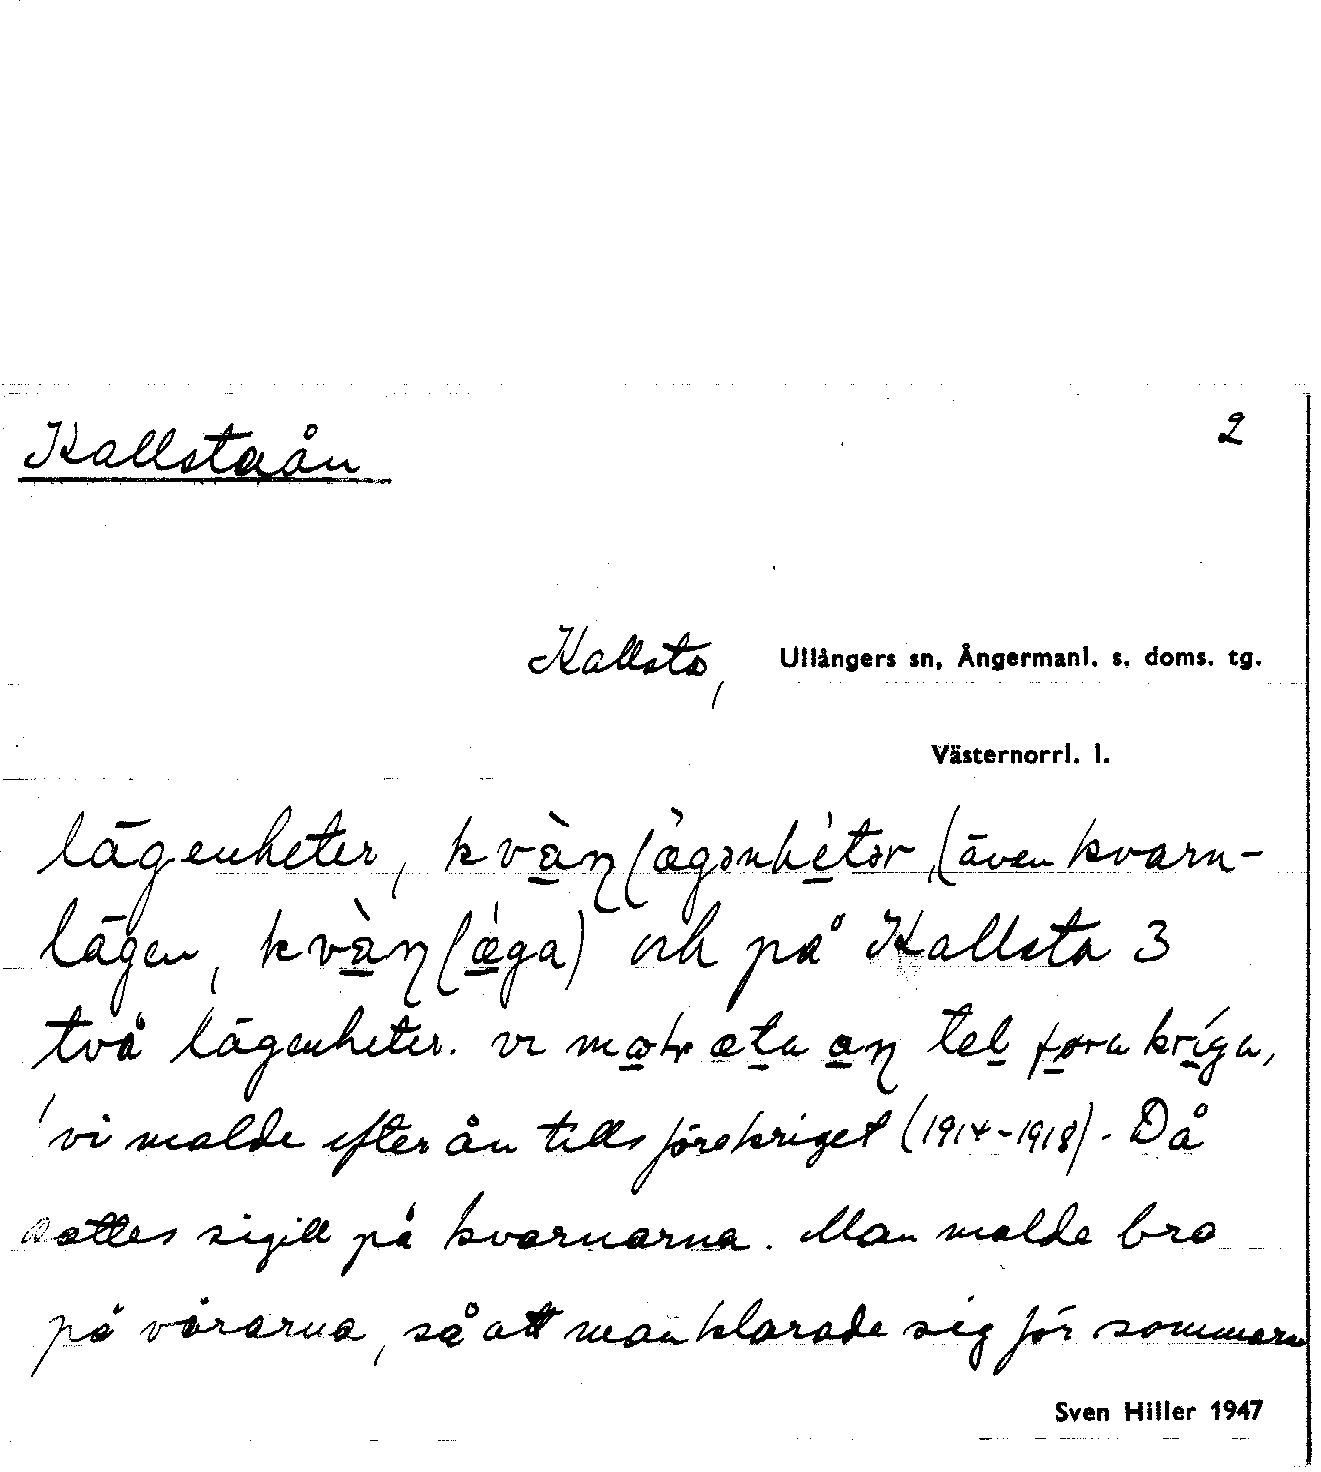 Kallstaån 2
Kallsta, Ullångers sn, Ångermanl. s. doms. tg.
Västernorrl. l.
lägenheter, (även kvarn-
lägen, och på Kallsta 3
två lägenheter. vi
'vi malde efter ån tills förekriget (1914-1918). Då
sattes sigill på kvarnarna. Man malde bra
på vårarna, så att man klarade sig för sommarn
Sven Hiller 1947